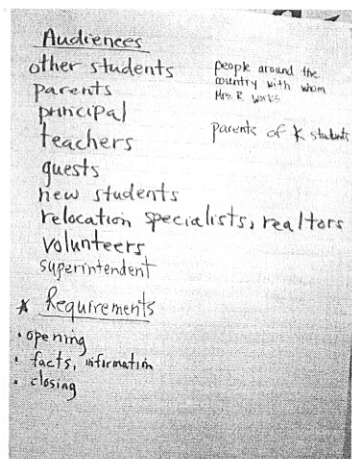 Audiences
other students
parents
principal
teachers
guests
new students
relocation specialists, realtors
volunteers
superintendent
people around the
country with whom
Mrs. R works
parents of K students
* Requirements
• opening
• facts, information
• closing